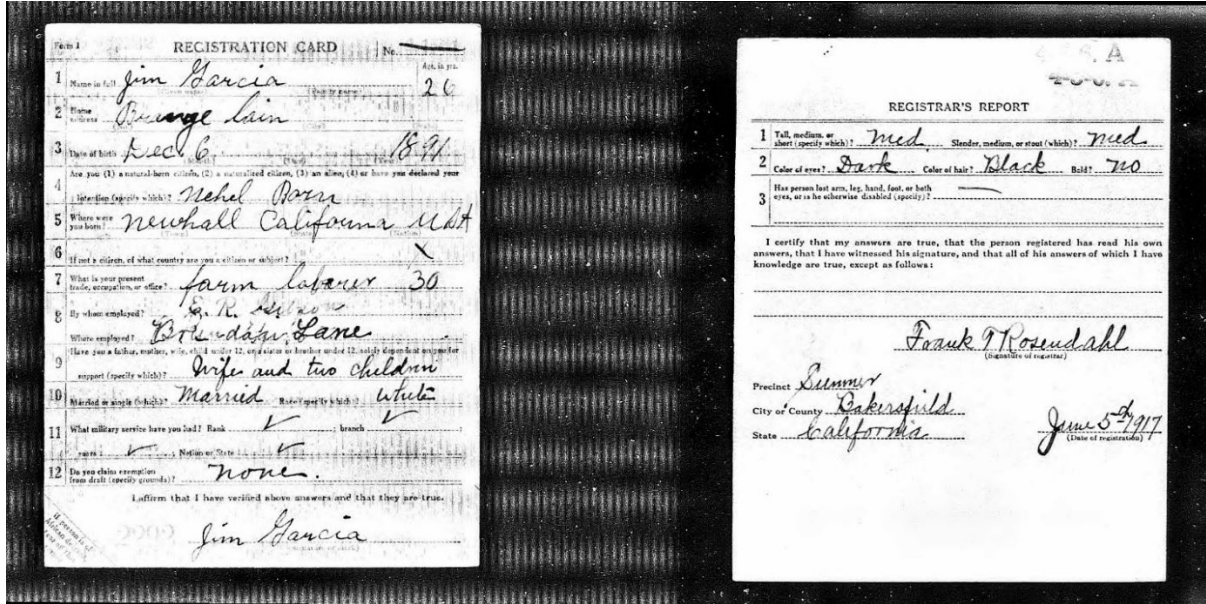 Form 1 REGISTRATION CARD No.
1 Name in full Jim Garcia Age, in yrs. 26
2 Home address
3 Date of birth Dec. 6 1891
Are you (1) a natural-born citizen, (2) a naturalized citizen, (3) an alien, (4) or have you declared your
4 intention (specify which)? Born
5 Where were you born? Newhall California USA
6 If not a citizen, of what country are you a citizen or subject? X
7 What is your present trade, occupation, or office? farm laborer 30
8 By whom employed? E. R.
Where employed? Lane
Have you a father, mother, wife, child under 12, or a sister or brother under 12, solely dependent on you for
9 support (specify which)? Wife and two children
10 Married or single (which)? Married Race (specify which)? White
11 What military service have you had? Rank ✓ ; branch ✓ ;
years ✓ ; Nation or State ✓
12 Do you claim exemption from draft (specify grounds)? none.
I affirm that I have verified above answers and that they are true.
Jim Garcia
If person is of African descent
A
REGISTRAR'S REPORT
1 Tall, medium, or short (specify which)? Med. Slender, medium, or stout (which)? Med
2 Color of eyes? Dark Color of hair? Black Bald? no
3 Has person lost arm, leg, hand, foot, or both eyes, or is he otherwise disabled (specify)? —
I certify that my answers are true, that the person registered has read his own
answers, that I have witnessed his signature, and that all of his answers of which I have
knowledge are true, except as follows:
Frank T Rosendahl
(Signature of registrar)
Precinct Sumner
City or County Bakersfield
State California
June 5 1917
(Date of registration)